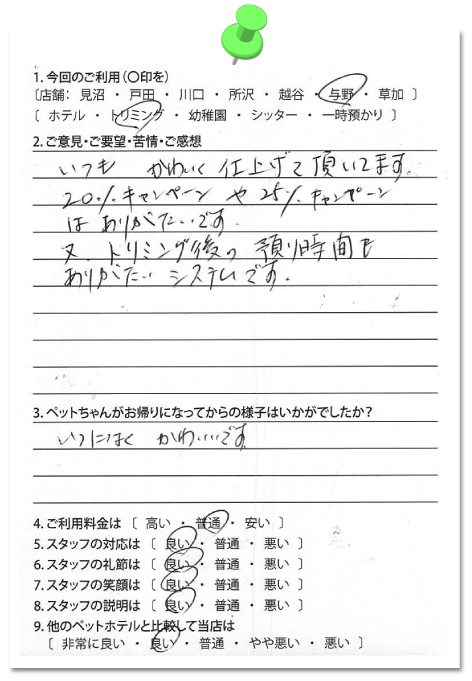 1.今回のご利用(〇印を)
〔店舗: 見沼 ・ 戸田 ・ 川口 ・ 所沢 ・ 越谷 ・ 与野 ・ 草加 〕
〔 ホテル ・ トリミング ・ 幼稚園 ・ シッター ・ 一時預かり 〕
2.ご意見・ご要望・苦情・ご感想
いつも かわいく 仕上げて頂いてます。
20%キャンペーン や 25%キャンペーン
はありがたいです。
又、トリミング後の預り時間も
ありがたいシステムです。
3.ペットちゃんがお帰りになってからの様子はいかがでしたか?
かわいいです
4.ご利用料金は 〔 高い ・ 普通 ・ 安い 〕
5.スタッフの対応は 〔 良い ・ 普通 ・ 悪い 〕
6.スタッフの礼節は 〔 良い ・ 普通 ・ 悪い 〕
7.スタッフの笑顔は 〔 良い ・ 普通 ・ 悪い 〕
8.スタッフの説明は 〔 良い ・ 普通 ・ 悪い 〕
9.他のペットホテルと比較して当店は
〔 非常に良い ・ 良い ・ 普通 ・ やや悪い ・ 悪い 〕